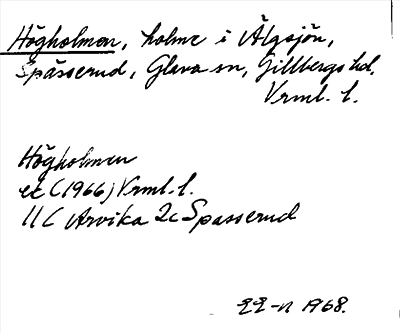 Högholmen, holme i Älgsjön,
Spässerud, Glava sn, Gillbergs hd,
Vrml. l.
Högholmen
ek (1966) Vrml. l.
11C Arvika 2c Spässerud
1968.